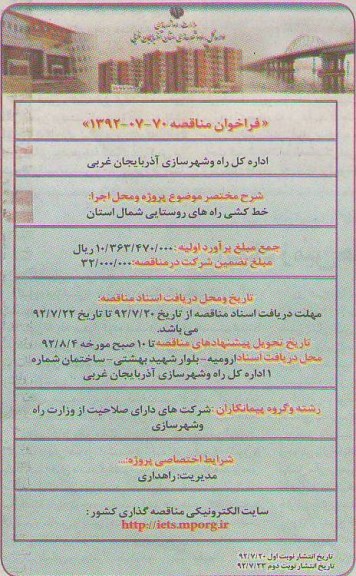 وزارت راه و شهرسازی
اداره کل راه و شهرسازی استان آذربایجان غربی
«فراخوان مناقصه ۷۰-۰۷-۱۳۹۲»
اداره کل راه وشهرسازی آذربایجان غربی
شرح مختصر موضوع پروژه ومحل اجرا:
خط کشی راه های روستایی شمال استان
جمع مبلغ برآورد اولیه: ۱۰/۳۶۳/۴۷۰/۰۰۰ ریال
مبلغ تضمین شرکت درمناقصه: ۳۲/۰۰۰/۰۰۰
تاریخ ومحل دریافت اسناد مناقصه:
مهلت دریافت اسناد مناقصه از تاریخ ۹۲/۷/۲۰ تا تاریخ ۹۲/۷/۲۲
می باشد.
تاریخ تحویل پیشنهادهای مناقصه تا ۱۰ صبح مورخه ۹۲/۸/۴
محل دریافت اسناد ارومیه-بلوار شهید بهشتی-ساختمان شماره
۱ اداره کل راه وشهرسازی آذربایجان غربی
رشته وگروه پیمانکاران: شرکت های دارای صلاحیت از وزارت راه
وشهرسازی
شرایط اختصاصی پروژه:...
مدیریت: راهداری
سایت الکترونیکی مناقصه گذاری کشور:
http://iets.mporg.ir
تاریخ انتشار نوبت اول ۹۲/۷/۲۰
تاریخ انتشار نوبت دوم ۹۲/۷/۲۲